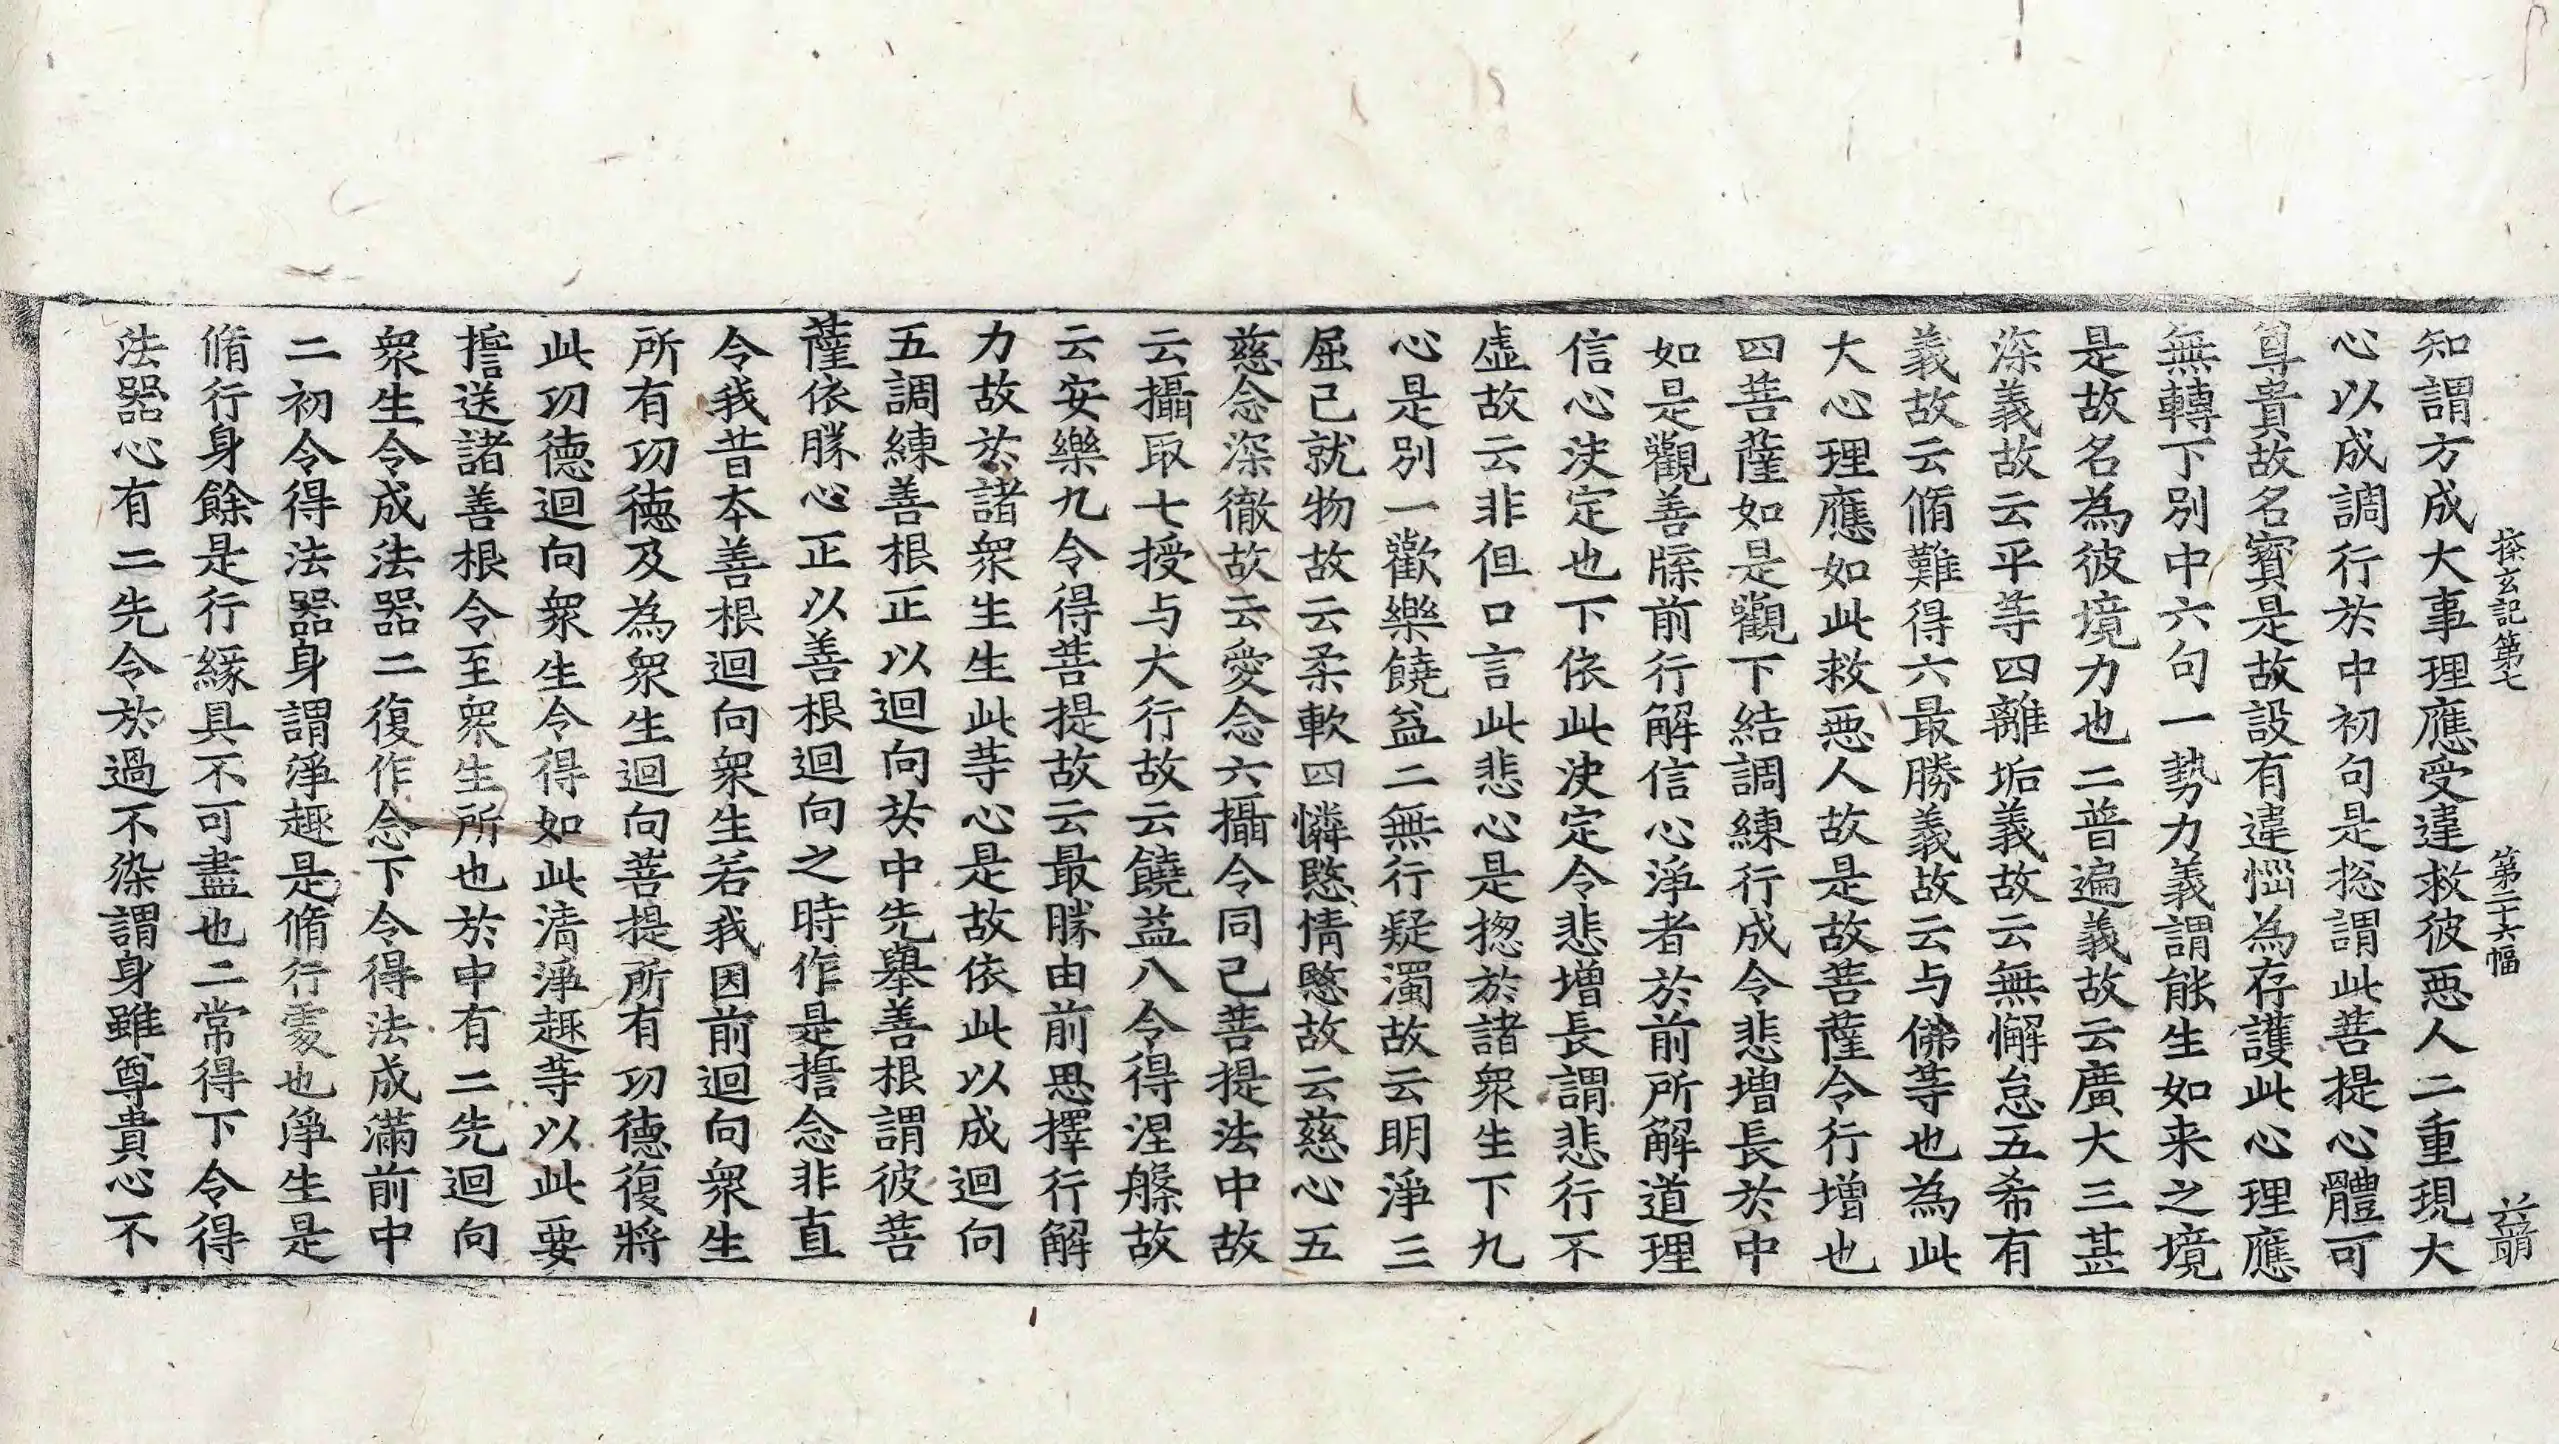 探玄記第七 第二十六幅 萌
知謂方成大事理應受違救彼惡人二重現大
心以成調行於中初句是捴謂此菩提心體可
尊貴故名寶是故設有違惱為存護此心理應
無轉下別中六句一勢力義謂能生如来之境
是故名為彼境力也二普遍義故云廣大三甚
深義故云平等四離垢義故云無懈怠五希有
義故云脩難得六最勝義故云与佛等也為此
大心理應如此救惡人故是故菩薩令行增也
四菩薩如是觀下結調練行成令悲增長於中
如是觀善䑃前行解信心淨者於前所解道理
信心決定也下依此決定令悲增長謂悲行不
虛故云非但口言此悲心是揔於諸衆生下九
心是別一歡樂饒益二無行疑濁故云明淨三
屈己就物故云柔軟四憐愍情愍故云慈心五
慈念深徹故云愛念六攝令同己菩提法中故
云攝取七授与大行故云饒益八令得涅槃故
云安樂九令得菩提故云最勝由前思擇行解
力故於諸衆生生此等心是故依此以成迴向
五調練善根正以迴向於中先舉善根謂彼菩
薩依勝心正以善根迴向之時作是擔念非直
令我昔本善根迴向衆生若我因前迴向衆生
所有功德及為衆生迴向菩提所有功德復將
此功德迴向衆生令得如此清淨趣等以此要
擔送諸善根令至衆生所也於中有二先迴向
衆生令成法器二復作念下令得法成滿前中
二初令得法器身謂淨趣是脩行處也淨生是
脩行身餘是行緣具不可盡也二常得下令得
法器心有二先令於過不染謂身雖尊貴心不